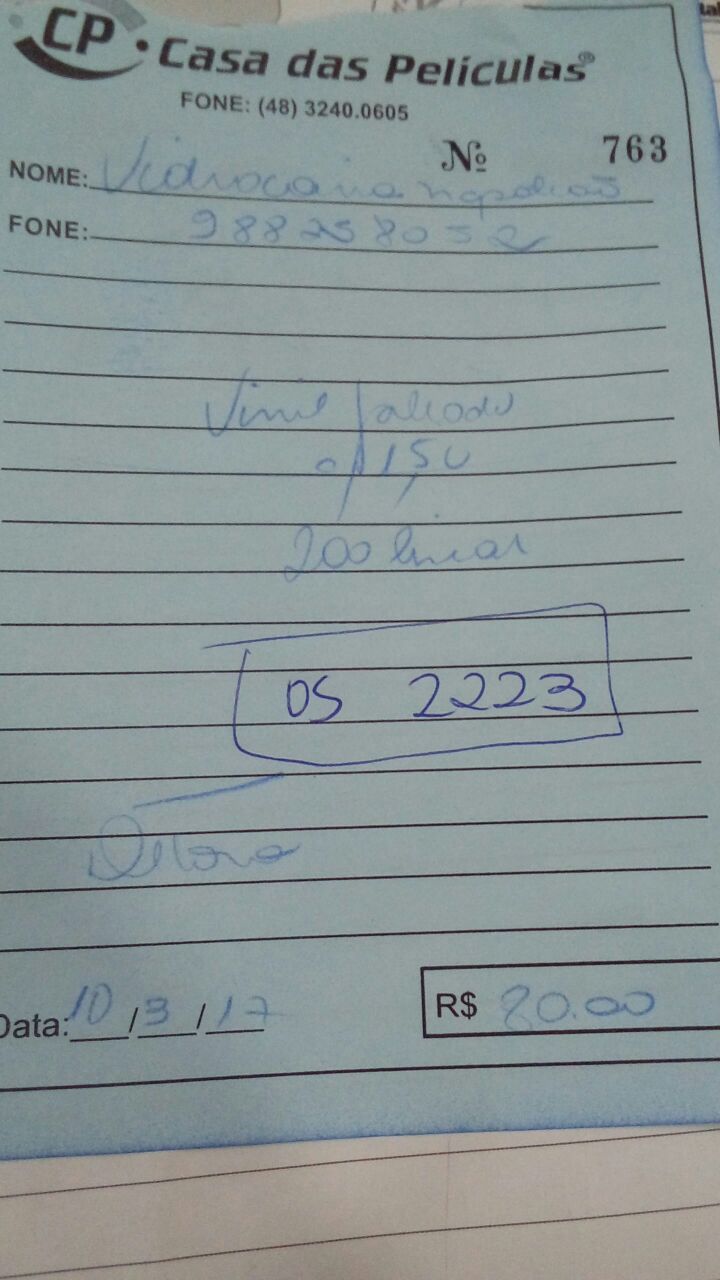 CP · Casa das Películas®
FONE: (48) 3240.0605
Nº 763
NOME: Vidraçaria napoleão
FONE: 988258052
Vinil Jateado
c/ 1,50
200 linear
OS 2223
Data: 10/3/17
R$ 80.00